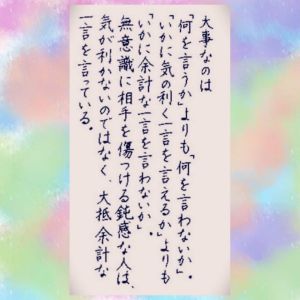 大事なのは
「何を言うか」よりも「何を言わないか」。
「いかに気の利く一言を言えるか」よりも
「いかに余計な一言を言わないか」。
無意識に相手を傷つける鈍感な人は、
気が利かないのではなく、大抵余計な
一言を言っている。